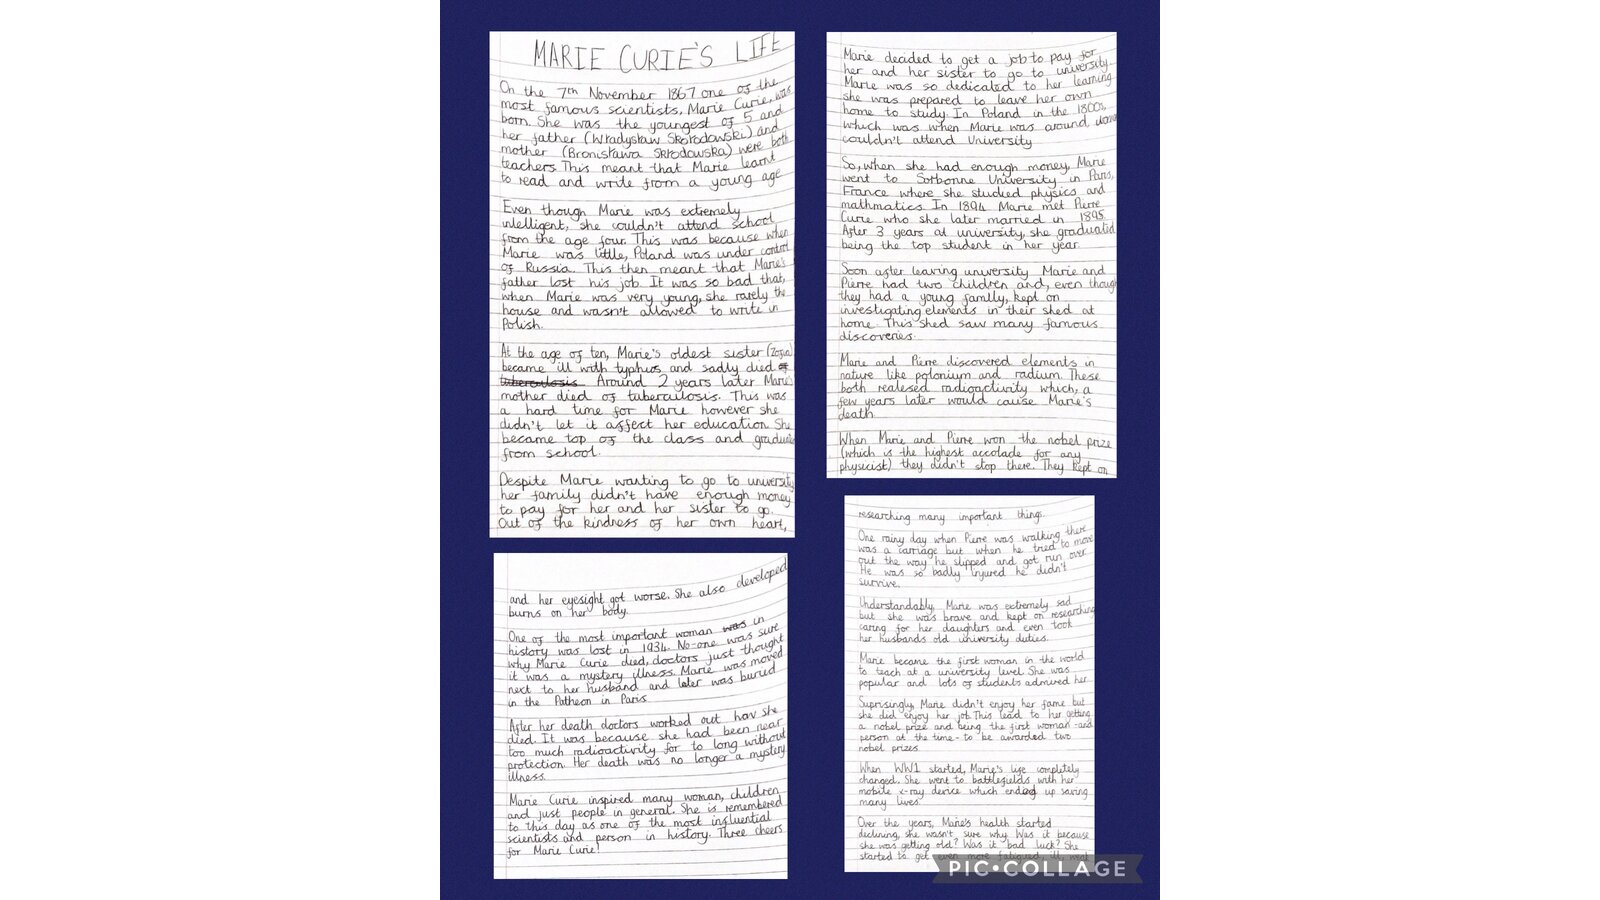 MARIE CURIE'S LIFE
On the 7th November 1867 one of the
most famous scientists, Marie Curie, was
born. She was the youngest of 5 and
her father (Władysław Skłodowski) and
mother (Bronisława Skłodowska) were both
teachers. This meant that Marie learnt
to read and write from a young age
Even though Marie was extremely
intelligent, she couldn't attend school
from the age four. This was because when
Marie was little, Poland was under control
of Russia. This then meant that Marie's
father lost his job. It was so bad that,
when Marie was very young, she rarely the
house and wasn't allowed to write in
Polish.
At the age of ten, Marie's oldest sister (Zofia)
became ill with typhus and sadly died of
tuberculosis. Around 2 years later Marie's
mother died of tuberculosis. This was
a hard time for Marie however she
didn't let it affect her education. She
became top of the class and
from school.
Despite Marie wanting to go to university
her family didn't have enough money
to pay for her and her sister to go.
Out of the kindness of her own heart,
Marie decided to get a job to pay for
her and her sister to go to university
Marie was so dedicated to her learning
she was prepared to leave her own
home to study. In Poland in the 1800s,
which was when Marie was around,
couldn't attend University
So, when she had enough money, Marie
went to Sorbonne University in Paris,
France where she studied physics and
mathmatics. In 1894 Marie met Pierre
Curie who she later married in 1895.
After 3 years at university, she graduated
being the top student in her year.
Soon after leaving university Marie and
Pierre had two children and, even though
they had a young family, kept on
investigating elements in their shed at
home. This shed saw many famous
discoveries.
Marie and Pierre discovered elements in
nature like polonium and radium. These
both realesed radioactivity which, a
few years later would cause Marie's
death.
When Marie and Pierre won the nobel prize
(which is the highest accolade for any
physicist) they didn't stop there. They kept on
researching many important things.
One rainy day when Pierre was walking there
was a carriage but when he tried to move
out the way he slipped and got run over
He was so badly injured he didn't
survive.
Understandably, Marie was extremely sad
but she was brave and kept on researching
caring for her daughters and even took
her husbands old university duties.
Marie became the first woman in the world
to teach at a university level. She was
popular and lots of students admired her
Suprisingly, Marie didn't enjoy her fame but
she did enjoy her job. This lead to her getting
a nobel prize and being the first woman - and
person at the time - to be awarded two
nobel prizes
When WW1 started, Marie's life completely
changed. She went to battlefields with her
mobile x-ray device which ended up saving
many lives
Over the years, Marie's health started
declining, she wasn't sure why. Was it because
she was getting old? Was it bad luck? She
started to get even more fatigued, ill, weak
and her eyesight got worse. She also developed
burns on her body.
One of the most important woman was in
history was lost in 1934. No-one was sure
why Marie Curie died, doctors just thought
it was a mystery illness. Marie was moved
next to her husband and later was buried
in the Patheon in Paris
After her death doctors worked out how she
died. It was because she had been near
too much radioactivity for to long without
protection. Her death was no longer a mystery
illness.
Marie Curie inspired many woman, children
and just people in general. She is remembered
to this day as one of the most influential
scientists and person in history. Three cheers
for Marie Curie!
PIC•COLLAGE